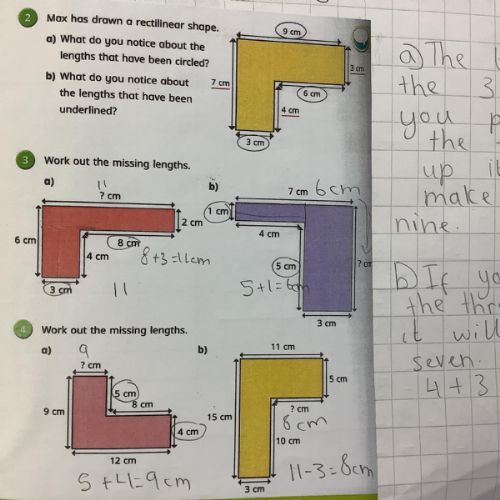 2 Max has drawn a rectilinear shape.
a) What do you notice about the
lengths that have been circled?
b) What do you notice about
the lengths that have been
underlined?
9 cm
7 cm
3 cm
6 cm
4 cm
3 cm
3 Work out the missing lengths.
a) 11
? cm
6 cm
2 cm
8 cm
4 cm
8+3=11cm
3 cm
11
b) 7 cm 6cm
1 cm
4 cm
5 cm
? cm
5+1=6cm
3 cm
4 Work out the missing lengths.
a) 9
? cm
5 cm
8 cm
9 cm
4 cm
12 cm
5+4=9cm
b) 11 cm
5 cm
15 cm
? cm
8cm
10 cm
11-3=8cm
3 cm
a) The
the 3
you
the
up
make
nine.
b) If
the
it will
seven.
4+3